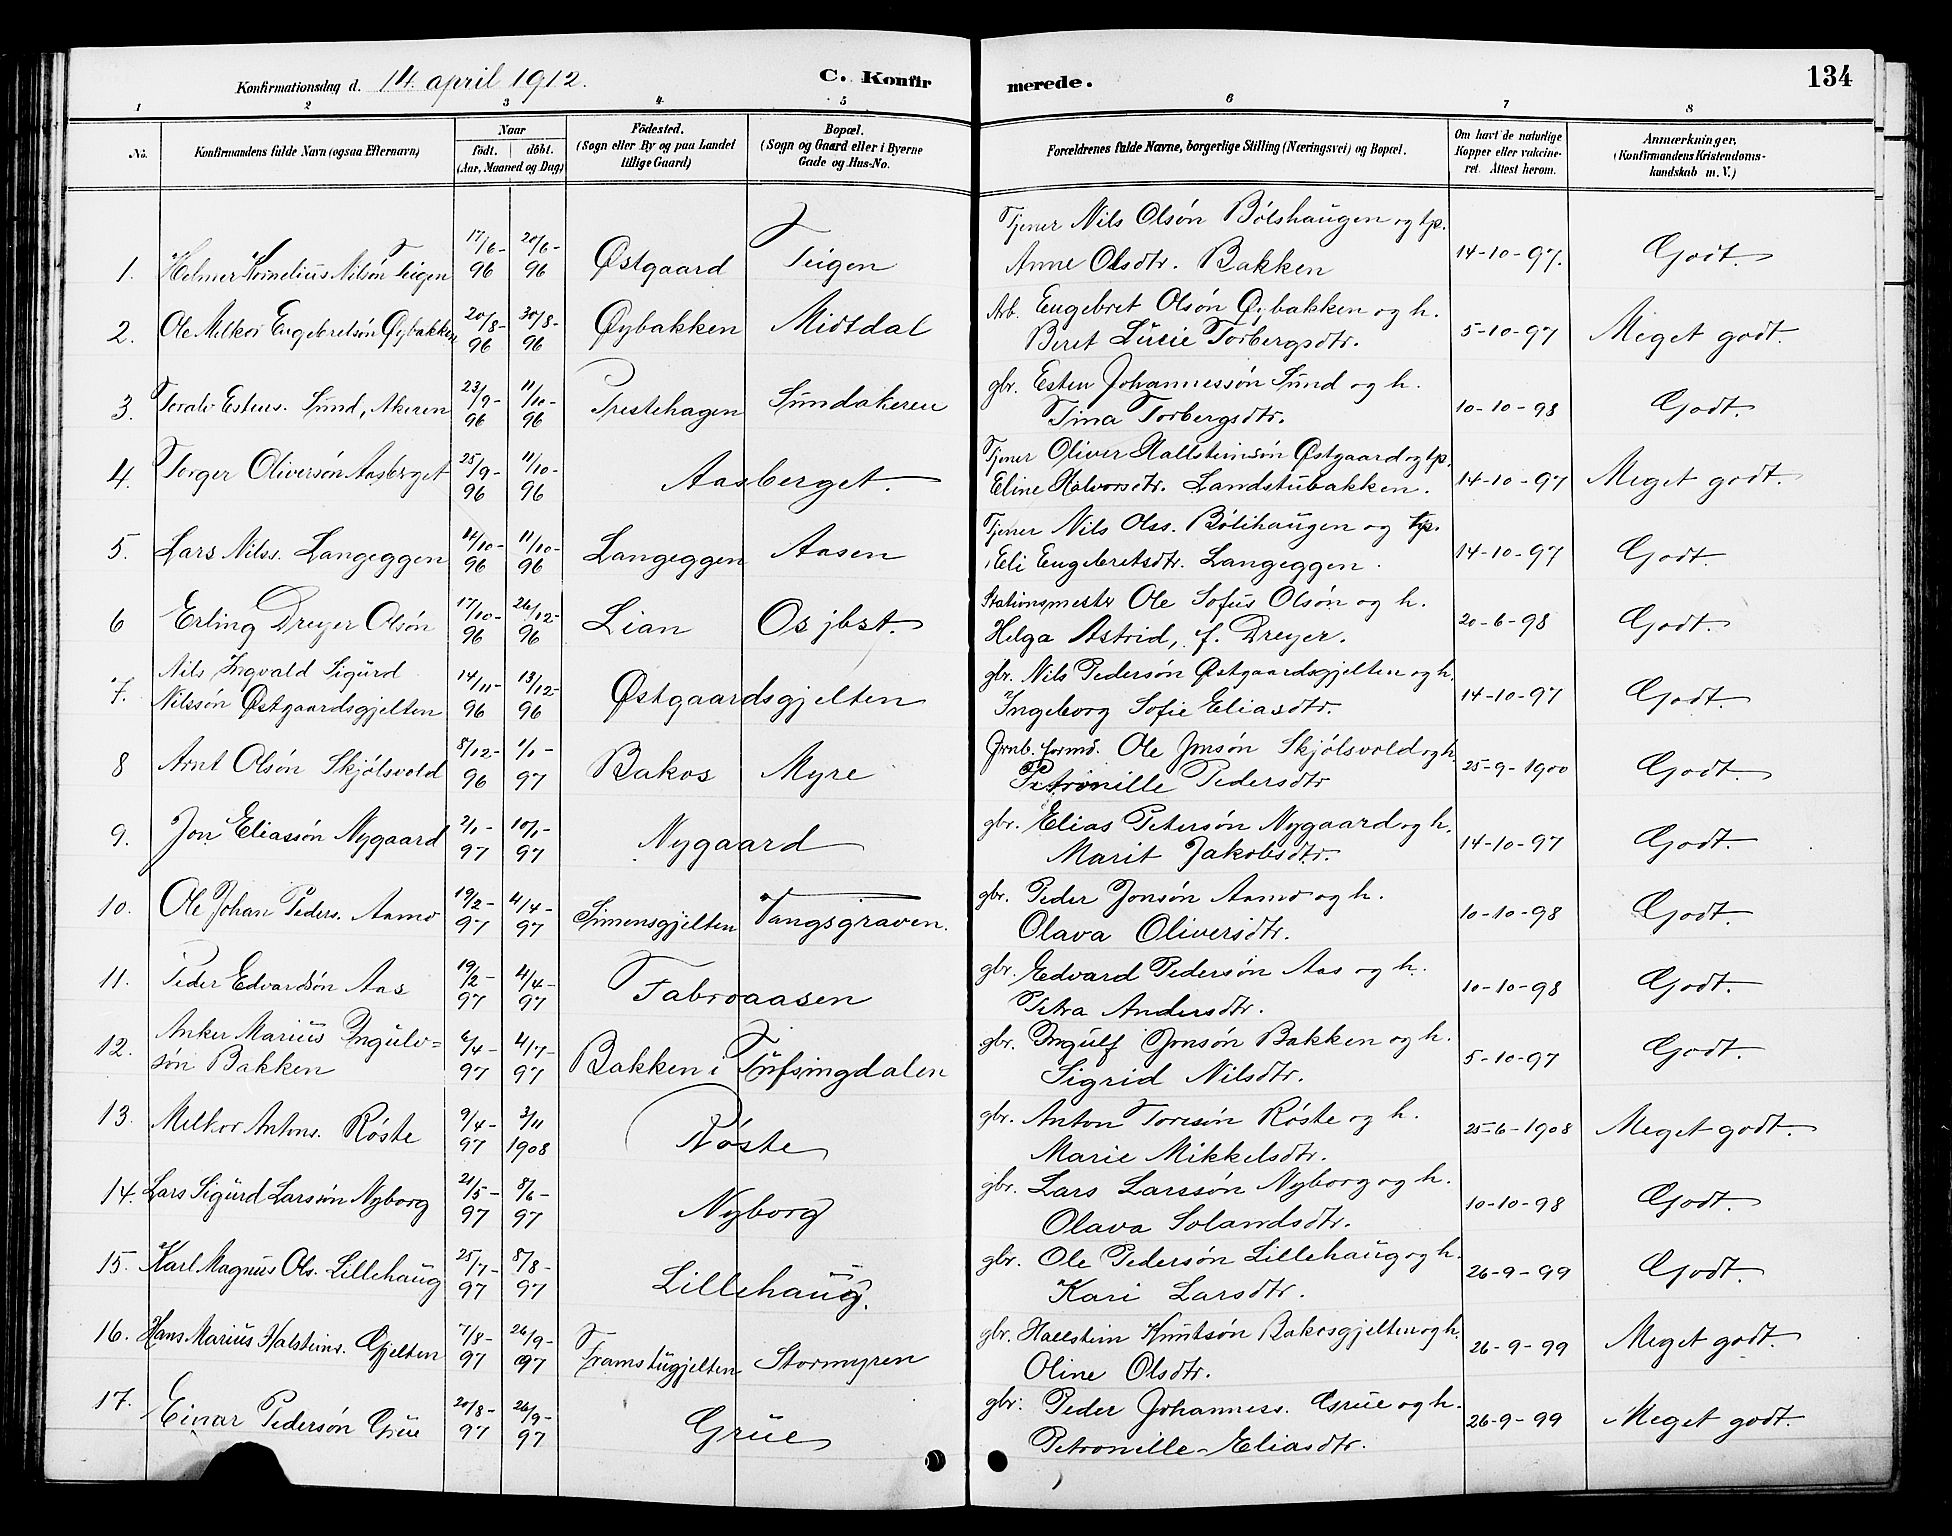 Konfirmationsdag d. 14. april 1912.
C. Konfirmerede.
134
1 2 3 4 5 6 7 8
No.
Konfirmandens fulde Navn (ogsaa Efternavn)
Naar
født. døbt.
(Aar, Maaned og Dag)
Fødested.
(Sogn eller By og paa Landet
tillige Gaard)
Bopæl.
(Sogn og Gaard eller i Byerne
Gade og Hus-No.
Forældrenes fulde Navne, borgerlige Stilling (Næringsvei) og Bopæl.
Om havt de naturlige
Kopper eller vakcine-
ret. Attest herom.
Anmærkninger,
(Konfirmandens Kristendoms-
kundskab m. V.)
Tjener Nils Olsøn Bølshaugen og tp.
1. Helmer Kornelius Nilsøn Teigen 17/6-96 20/6-96 Østgaard Teigen Anne Olsdtr. Bakken 14-10-97. Godt.
Arb. Engebret Olsøn Øybakken og h.
2. Ole Melkor Engebretsøn Øybakken 20/8-96 30/8-96 Øybakken Midtdal Beret Lucie Torbergsdtr. 5-10-97 Meget godt.
gbr. Esten Johannessøn Sund og h.
3. Toralv Estens. Sund, Akeren 23/9-96 11/10-96 Prestehagen Sundakeren Tina Torbergsdtr. 10-10-98 Godt.
Tjener Oliver Hallsteinsøn Østgaard og tp.
4. Torger Oliversøn Aasberget 25/9-96 11/10-96 Aasberget. Eline Halvorsdtr. Landstubakken. 14-10-97 Meget godt.
Tjener Nils Olss. Bølihaugen og tp.
5. Lars Nilss. Langeggen 4/10-96 11/10-96 Langeggen Aasen Eli Engebretsdtr. Langeggen. 14-10-97 Godt.
Stationsmestr Ole Sofus Olsøn og h.
6 Erling Dreyer Olsøn 17/10-96 26/12-96 Lian Os jbst. Helga Astrid, f. Dreyer. 20-6-98 Godt.
Nils Ingvald Sigurd gbr. Nils Pedersøn Østgaardsgjelten og h.
7. Nilssøn Østgaardsgjelten 14/11-96 13/12-96 Østgaardsgjelten Ingeborg Sofie Eliasdtr. 14-10-97 Godt.
Jrnb. formd. Ole Jonsøn Skjølsvold og h.
8 Arnt Olsøn Skjølsvold 8/12-96 1/1-97 Bakos Myre Petronille Pedersdtr 25-9-1900 Godt.
gbr. Elias Petersøn Nygaard og h.
9. Jon Eliassøn Nygaard 2/1-97 10/1-97 Nygaard Marit Jakobsdtr. 14-10-97 Godt.
gbr. Peder Jonsøn Aamo og h.
10. Ole Johan Peders. Aamo 19/2-97 4/4-97 Simensgjelten Vangsgraven. Olava Oliversdtr. 10-10-98 Godt.
gbr. Edvard Pedersøn Aas og h.
11. Peder Edvardsøn Aas 19/2-97 4/4-97 Fabroaasen Petra Andersdtr. 10-10-98 Godt.
Anker Marius Ingulv= gbr. Ingulf Jonsøn Bakken og h.
12. søn Bakken 6/4-97 4/7-97 Bakken i Tufsingdalen Sigrid Nilsdtr. 5-10-97 Godt.
gbr. Anton Toresøn Røste og h.
13. Melkor Antons. Røste 9/4-97 3/11 1908 Røste Marie Mikkelsdtr. 25-6-1908 Meget godt.
gbr. Lars Larssøn Nyborg og h.
14. Lars Sigurd Larsøn Nyborg 21/5-97 8/6-97 Nyborg Olava Solandsdtr. 10-10-98 Godt.
gbr. Ole Pedersøn Lillehaug og h.
15. Karl Magnus Ols. Lillehaug 25/7-97 8/8-97 Lillehaug. Kari Larsdtr. 26-9-99 Godt.
gbr. Hallstein Knutsøn Bakosgjelten og h.
16. Hans Marius Halsteins. Gjelten 7/8-97 26/9-97 Framstugjelten Stormyren Oline Olsdtr. 26-9-99 Meget godt.
gbr. Peder Johanness. Grue og h.
17. Einar Pedersøn Grue 20/8-97 26/9-97 Grue Petronille Eliasdtr. 26-9-99 Meget godt.